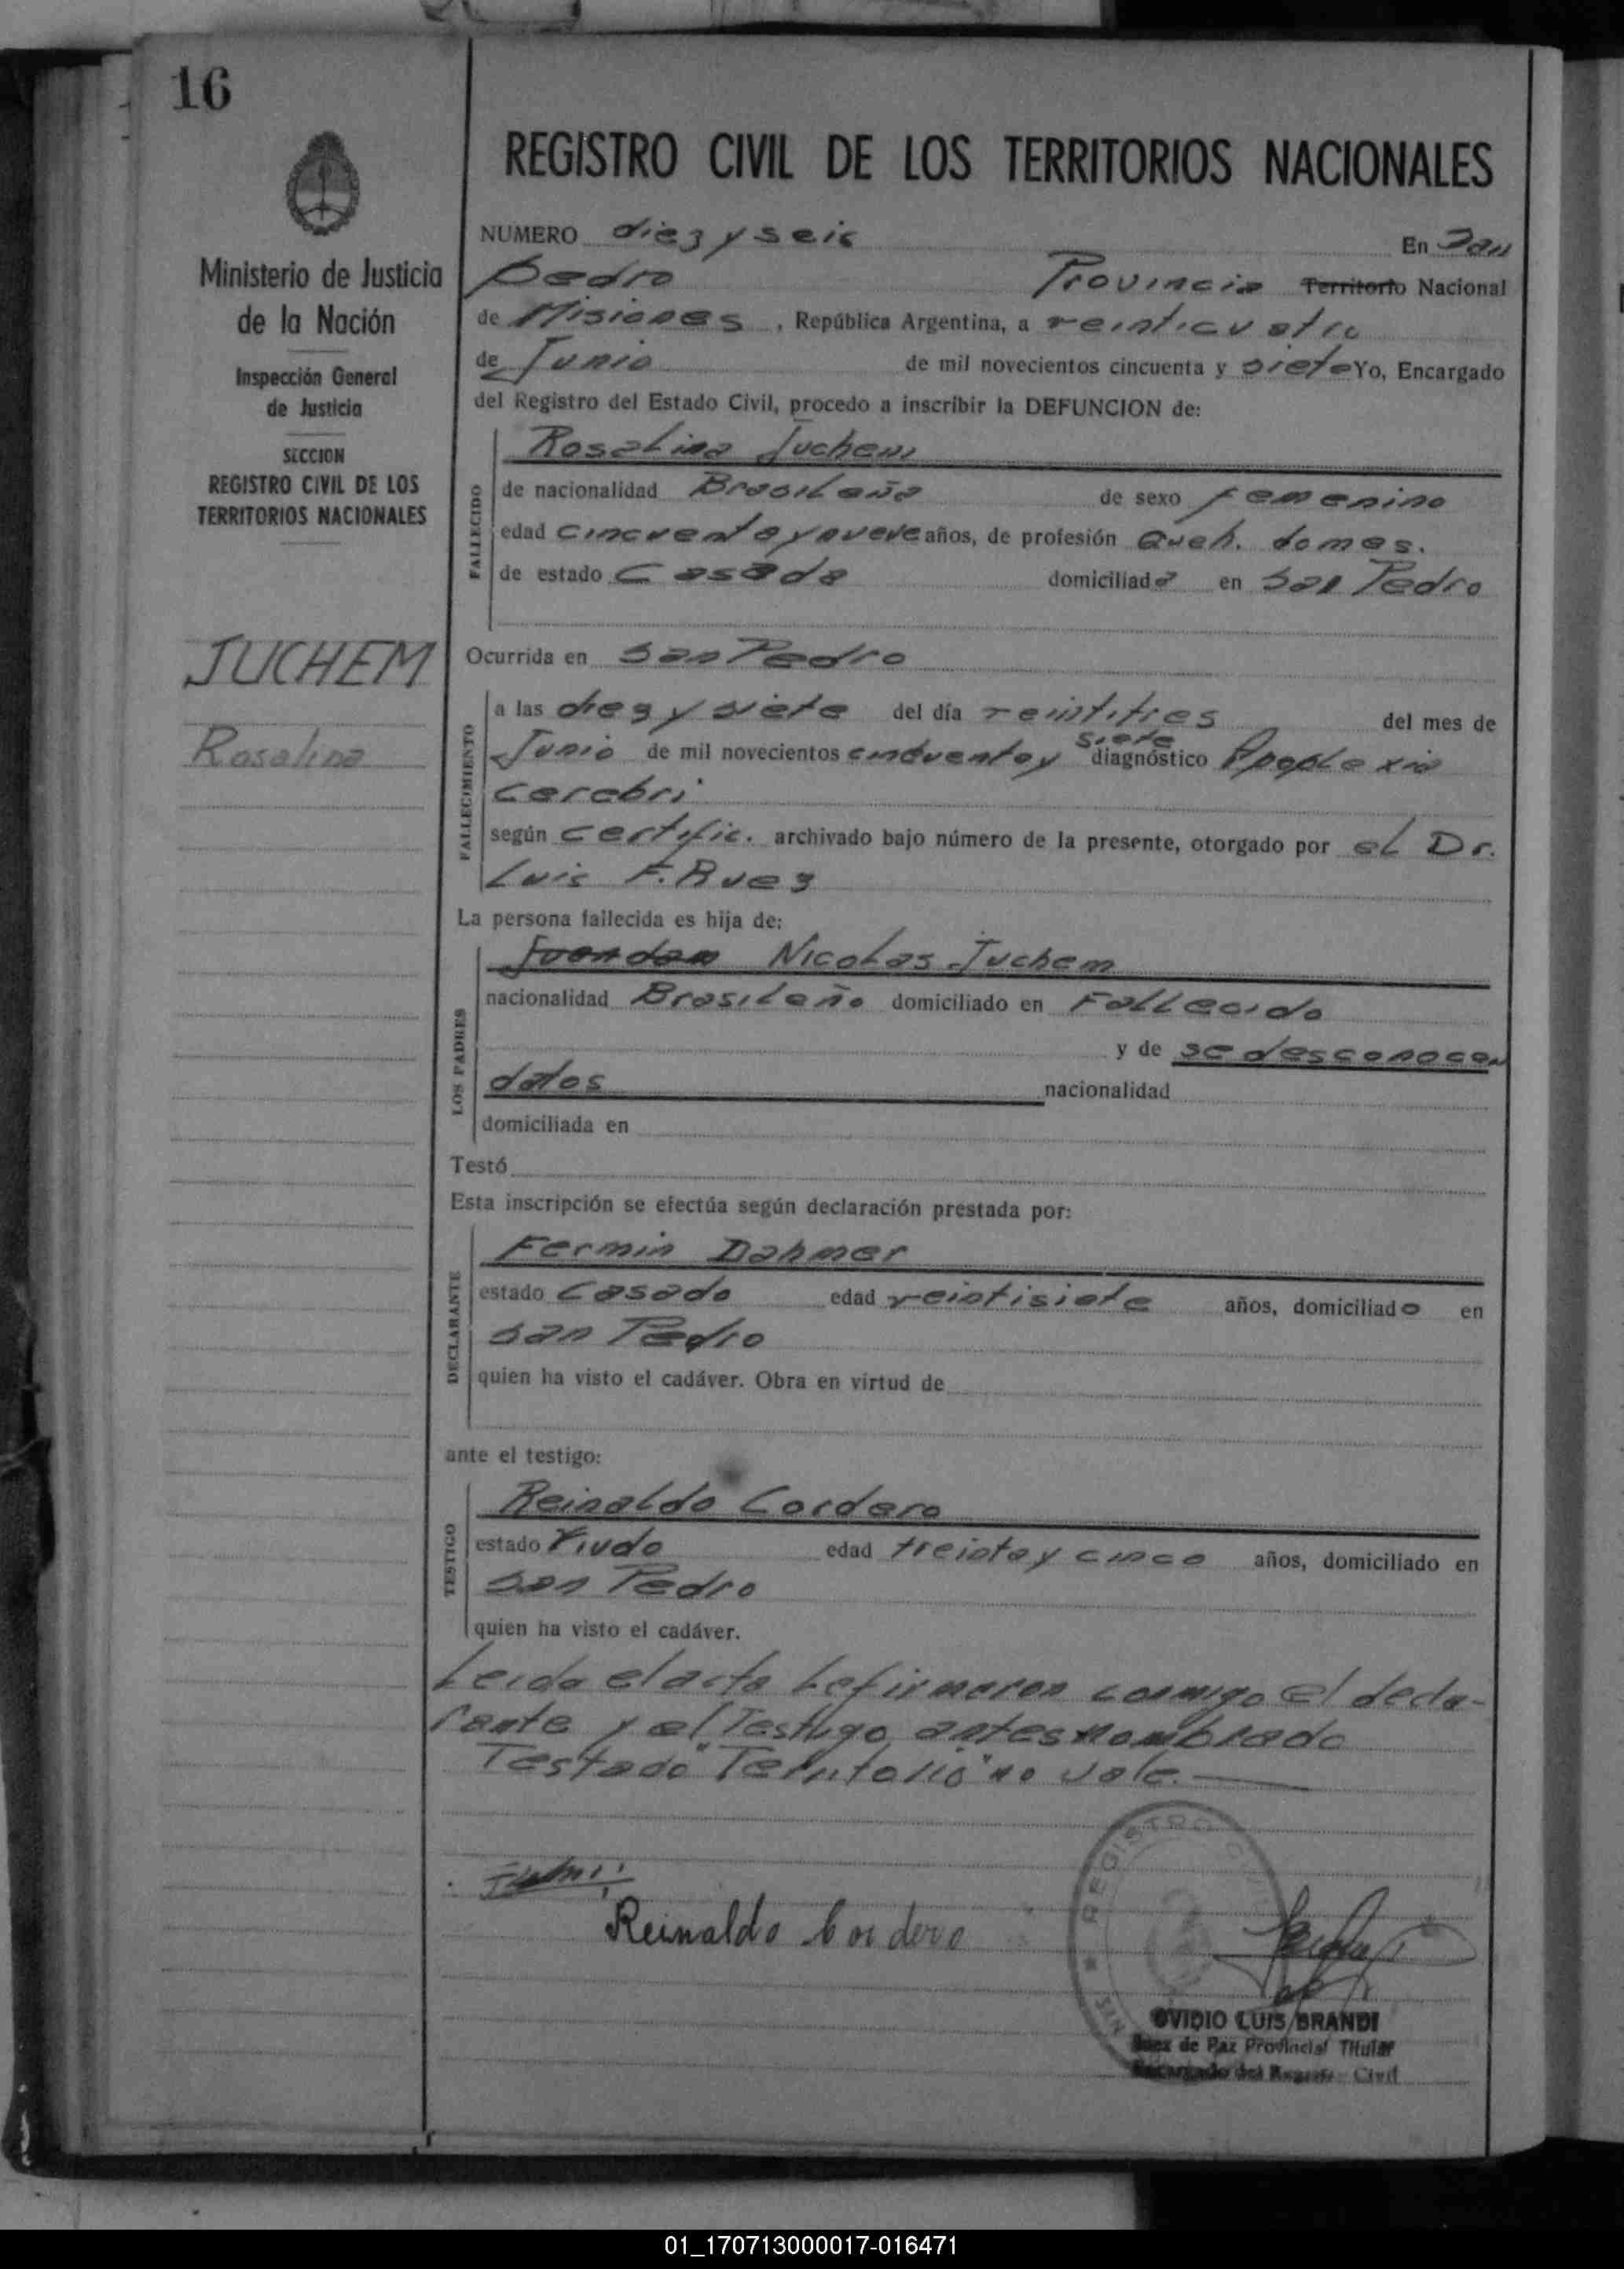 16
REGISTRO CIVIL DE LOS TERRITORIOS NACIONALES
Ministerio de Justicia
de la Nación
Inspección General
de Justicia
SECCION
REGISTRO CIVIL DE LOS
TERRITORIOS NACIONALES
JUCHEM
Rosalina
NUMERO diez y seis En San
Pedro Provincia Territorio Nacional
de Misiones, República Argentina, a veinticuatro
de Junio de mil novecientos cincuenta y siete Yo, Encargado
del Registro del Estado Civil, procedo a inscribir la DEFUNCION de:
FALLECIDO
Rosalina Juchem
de nacionalidad Brasileña de sexo femenino
edad cincuenta y nueve años, de profesión Queh. domes.
de estado Casada domiciliada en San Pedro
Ocurrida en San Pedro
FALLECIMIENTO
a las diez y siete del día veintitres del mes de
Junio de mil novecientos cincuenta y siete diagnóstico Apoplexia
Cerebri
según certific. archivado bajo número de la presente, otorgado por el Dr.
Luis F. Ruez
La persona fallecida es hija de:
LOS PADRES
Nicolas Juchem
nacionalidad Brasileño domiciliado en Fallecido
y de se desconocen
datos nacionalidad
domiciliada en
Testó
Esta inscripción se efectúa según declaración prestada por:
DECLARANTE
Fermin Dahmer
estado Casado edad veintisiete años, domiciliado en
San Pedro
quien ha visto el cadáver. Obra en virtud de
ante el testigo:
TESTIGO
Reinaldo Cordero
estado Viudo edad treinta y cinco años, domiciliado en
San Pedro
quien ha visto el cadáver.
Leida el acta la firmaron conmigo el decla-
rante y el Testigo antes nombrado
Testado "Territorio" no vale.
Reinaldo Cordero
REGISTRO
OVIDIO LUIS BRANDI
Juez de Paz Provincial Titular
Encargado del Registro Civil
01_170713000017-016471